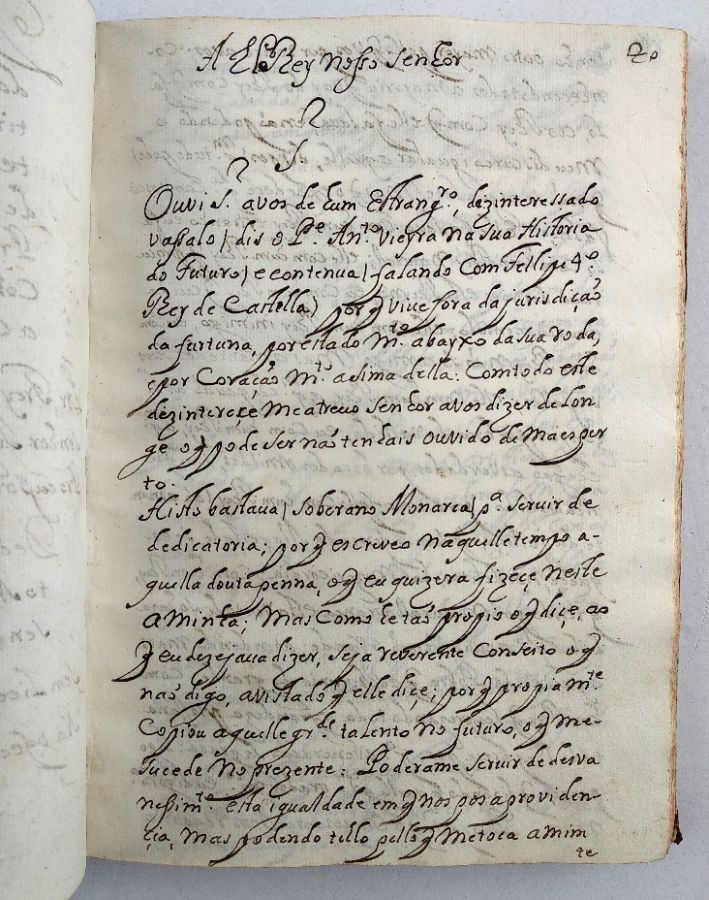 A El Rey Nosso Senhor
20
S.
Ouvi S.r a vos de hum Estrang.ro, dezinteressado
vassalo / dis o P.e Ant.o Vieyra na sua Historia
do Futuro / e contenua / falando Com Fellipe 4.o
Rey de Castella / porq̃ vive fora da jurisdiçaõ
da furtuna, por estado m.to abayxo da sua roda,
e por Coraçaõ m.to asima della: Com todo este
dezintereçe me atrevo senhor a vos dizer de lon-
ge o q̃ pode ser naõ tenhais ouvido de mais per
to.
Histo bastava / soberano Monarca / p.a servir de
dedicatoria; porq̃ escreveo naquelle tempo a-
quella douta penna, o q̃ eu quizera fizeçe neste
a minha; Mas Como he taõ propio o q̃ diçe, ao
q̃ eu dezejava dizer, seja reverente Conseito o q̃
naõ digo, a vista do q̃ elle diçe; porq̃ propiam.te
Copiou aquelle gr.de talento no futuro, o q̃ me
sucede no prezente: Poderame servir de desva
nessim.to esta igualdade em q̃ nos pos a providen-
çia, mas podendo tello pello q̃ me toca a mim
te